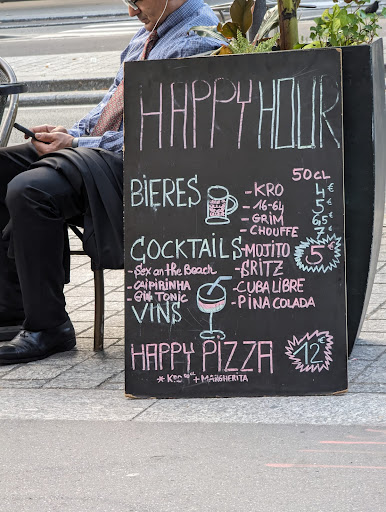 HAPPY HOUR
50CL
BIERES
- KRO 4€
- 16-64 5€
- GRIM 6,5€
- CHOUFFE 7€
COCKTAILS
- MOJITO 5€
- Sex on the Beach - SRITZ
- CAIPIRINHA - CUBA LIBRE
- Gin TONIC - PINA COLADA
VINS
HAPPY PIZZA 12€
* KRO + MARGHERITA